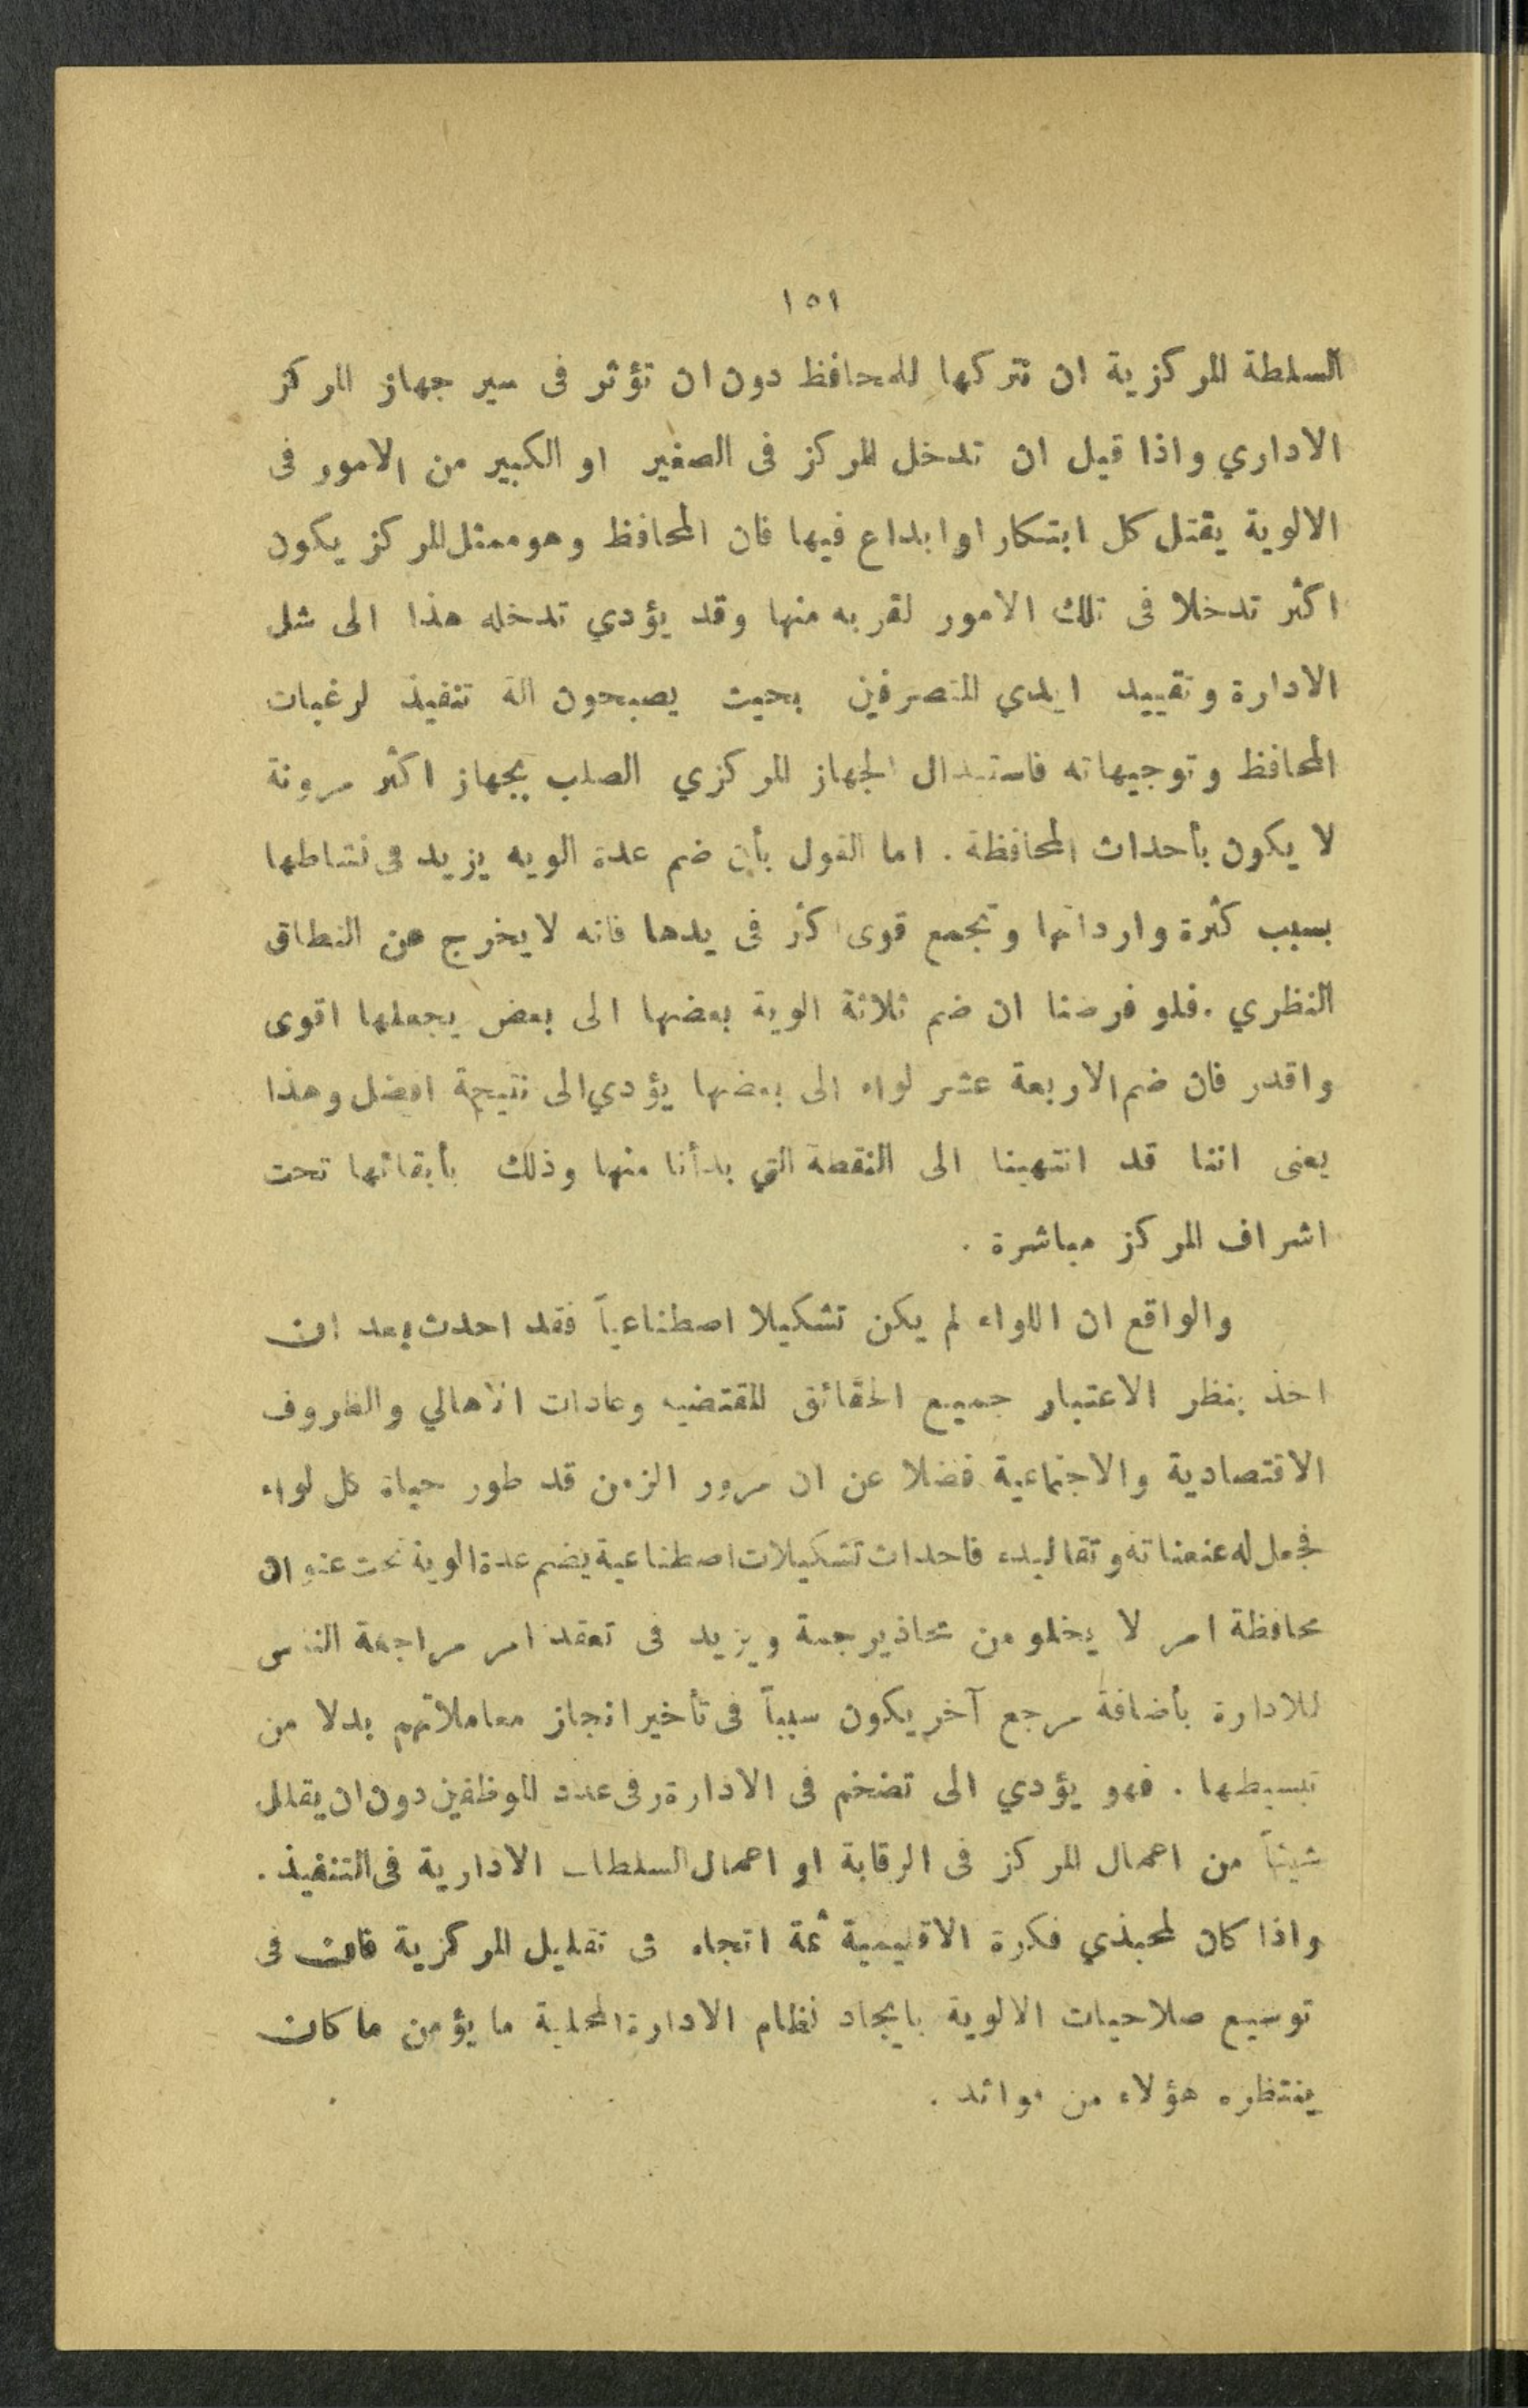 ١٥١
السلطة المركزية ان تتركها للمحافظ دون ان تؤثر فى سير جهاز المركز
الاداري واذا قيل ان تدخل المركز فى الصغير او الكبير من الامور فى
الالوية يقتل كل ابتكار او ابداع فيها فان المحافظ وهو ممثل المركز يكون
اكثر تدخلا فى تلك الامور لقربه منها وقد يؤدي تدخله هذا الى شل
الادارة وتقييد ايدي المتصرفين بحيث يصبحون الة تنفيذ لرغبات
المحافظ وتوجيهاته فاستبدال الجهاز المركزي الصلب بجهاز اكثر مرونة
لا يكون بأحداث المحافظة . اما القول بأن ضم عدة الويه يزيد فى نشاطها
بسبب كثرة وارداتها وتجمع قوى اكثر فى يدها فانه لا يخرج عن النطاق
النظري . فلو فرضنا ان ضم ثلاثة الوية بعضها الى بعض يجعلها اقوى
واقدر فان ضم الاربعة عشر لواء الى بعضها يؤدي الى نتيجة افضل وهذا
يعنى اننا قد انتهينا الى النقطة التي بدأنا منها وذلك بأبقائها تحت
اشراف المركز مباشرة .
والواقع ان اللواء لم يكن تشكيلا اصطناعياً فقد احدث بعد ان
اخذ بنظر الاعتبار جميع الحقائق المقتضيه وعادات الاهالي والظروف
الاقتصادية والاجتماعية فضلا عن ان مرور الزمن قد طور حياة كل لواء
فجعل له عنعناته وتقاليده فاحداث تشكيلات اصطناعية يضم عدة الوية تحت عنوان
محافظة امر لا يخلو من محاذير جمة ويزيد فى تعقد امر مراجعة الناس
للادارة بأضافة مرجع آخر يكون سبباً فى تأخير انجاز معاملاتهم بدلا من
تبسيطها . فهو يؤدي الى تضخم فى الادارة وفى عدد الموظفين دون ان يقلل
شيئاً من اعمال المركز فى الرقابة او اعمال السلطات الادارية فى التنفيذ .
واذا كان لمحبذي فكرة الاقليمية ثمة اتجاه فى تقليل المركزية فان فى
توسيع صلاحيات الالوية بايجاد نظام الادارة المحلية ما يؤمن ما كان
ينتظره هؤلاء من فوائد .